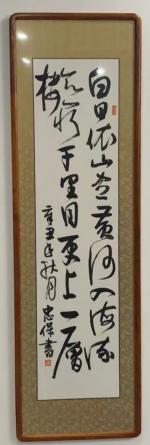 白日依山尽黄河入海流
欲穷千里目更上一層
楼 辛丑年秋月 忠保書